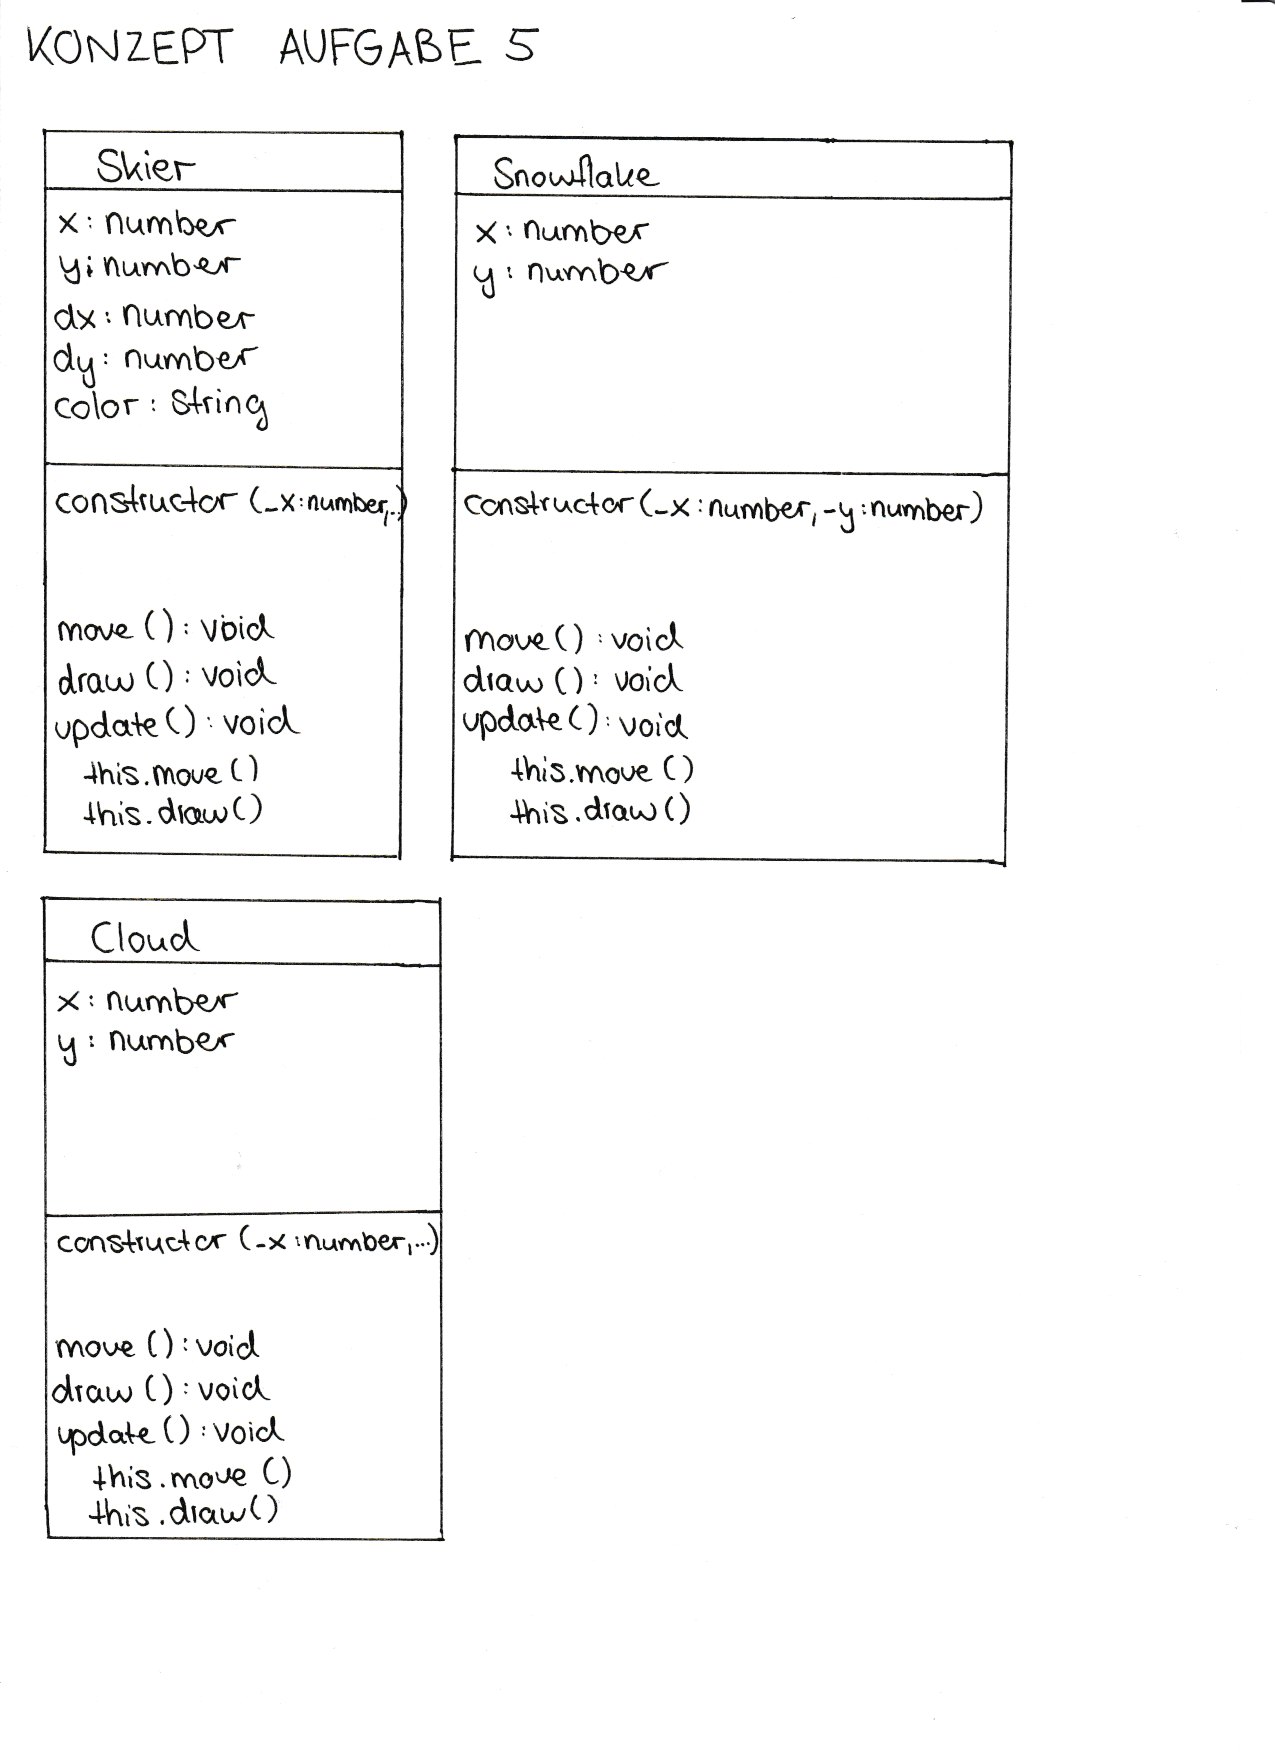 KONZEPT AUFGABE 5
Skier
x : number
y : number
dx : number
dy : number
color : String
constructor (_x:number,..)
move () : void
draw () : void
update () : void
this.move ()
this.draw()
Snowflake
x : number
y : number
constructor (_x : number, _y : number)
move () : void
draw () : void
update () : void
this.move ()
this.draw ()
Cloud
x : number
y : number
constructor (_x : number, ...)
move () : void
draw () : void
update () : void
this.move ()
this.draw()